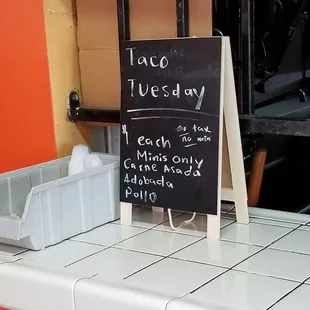 Taco
Tuesday
each no tax
no min
Minis Only
Carne Asada
Adobada
Pollo